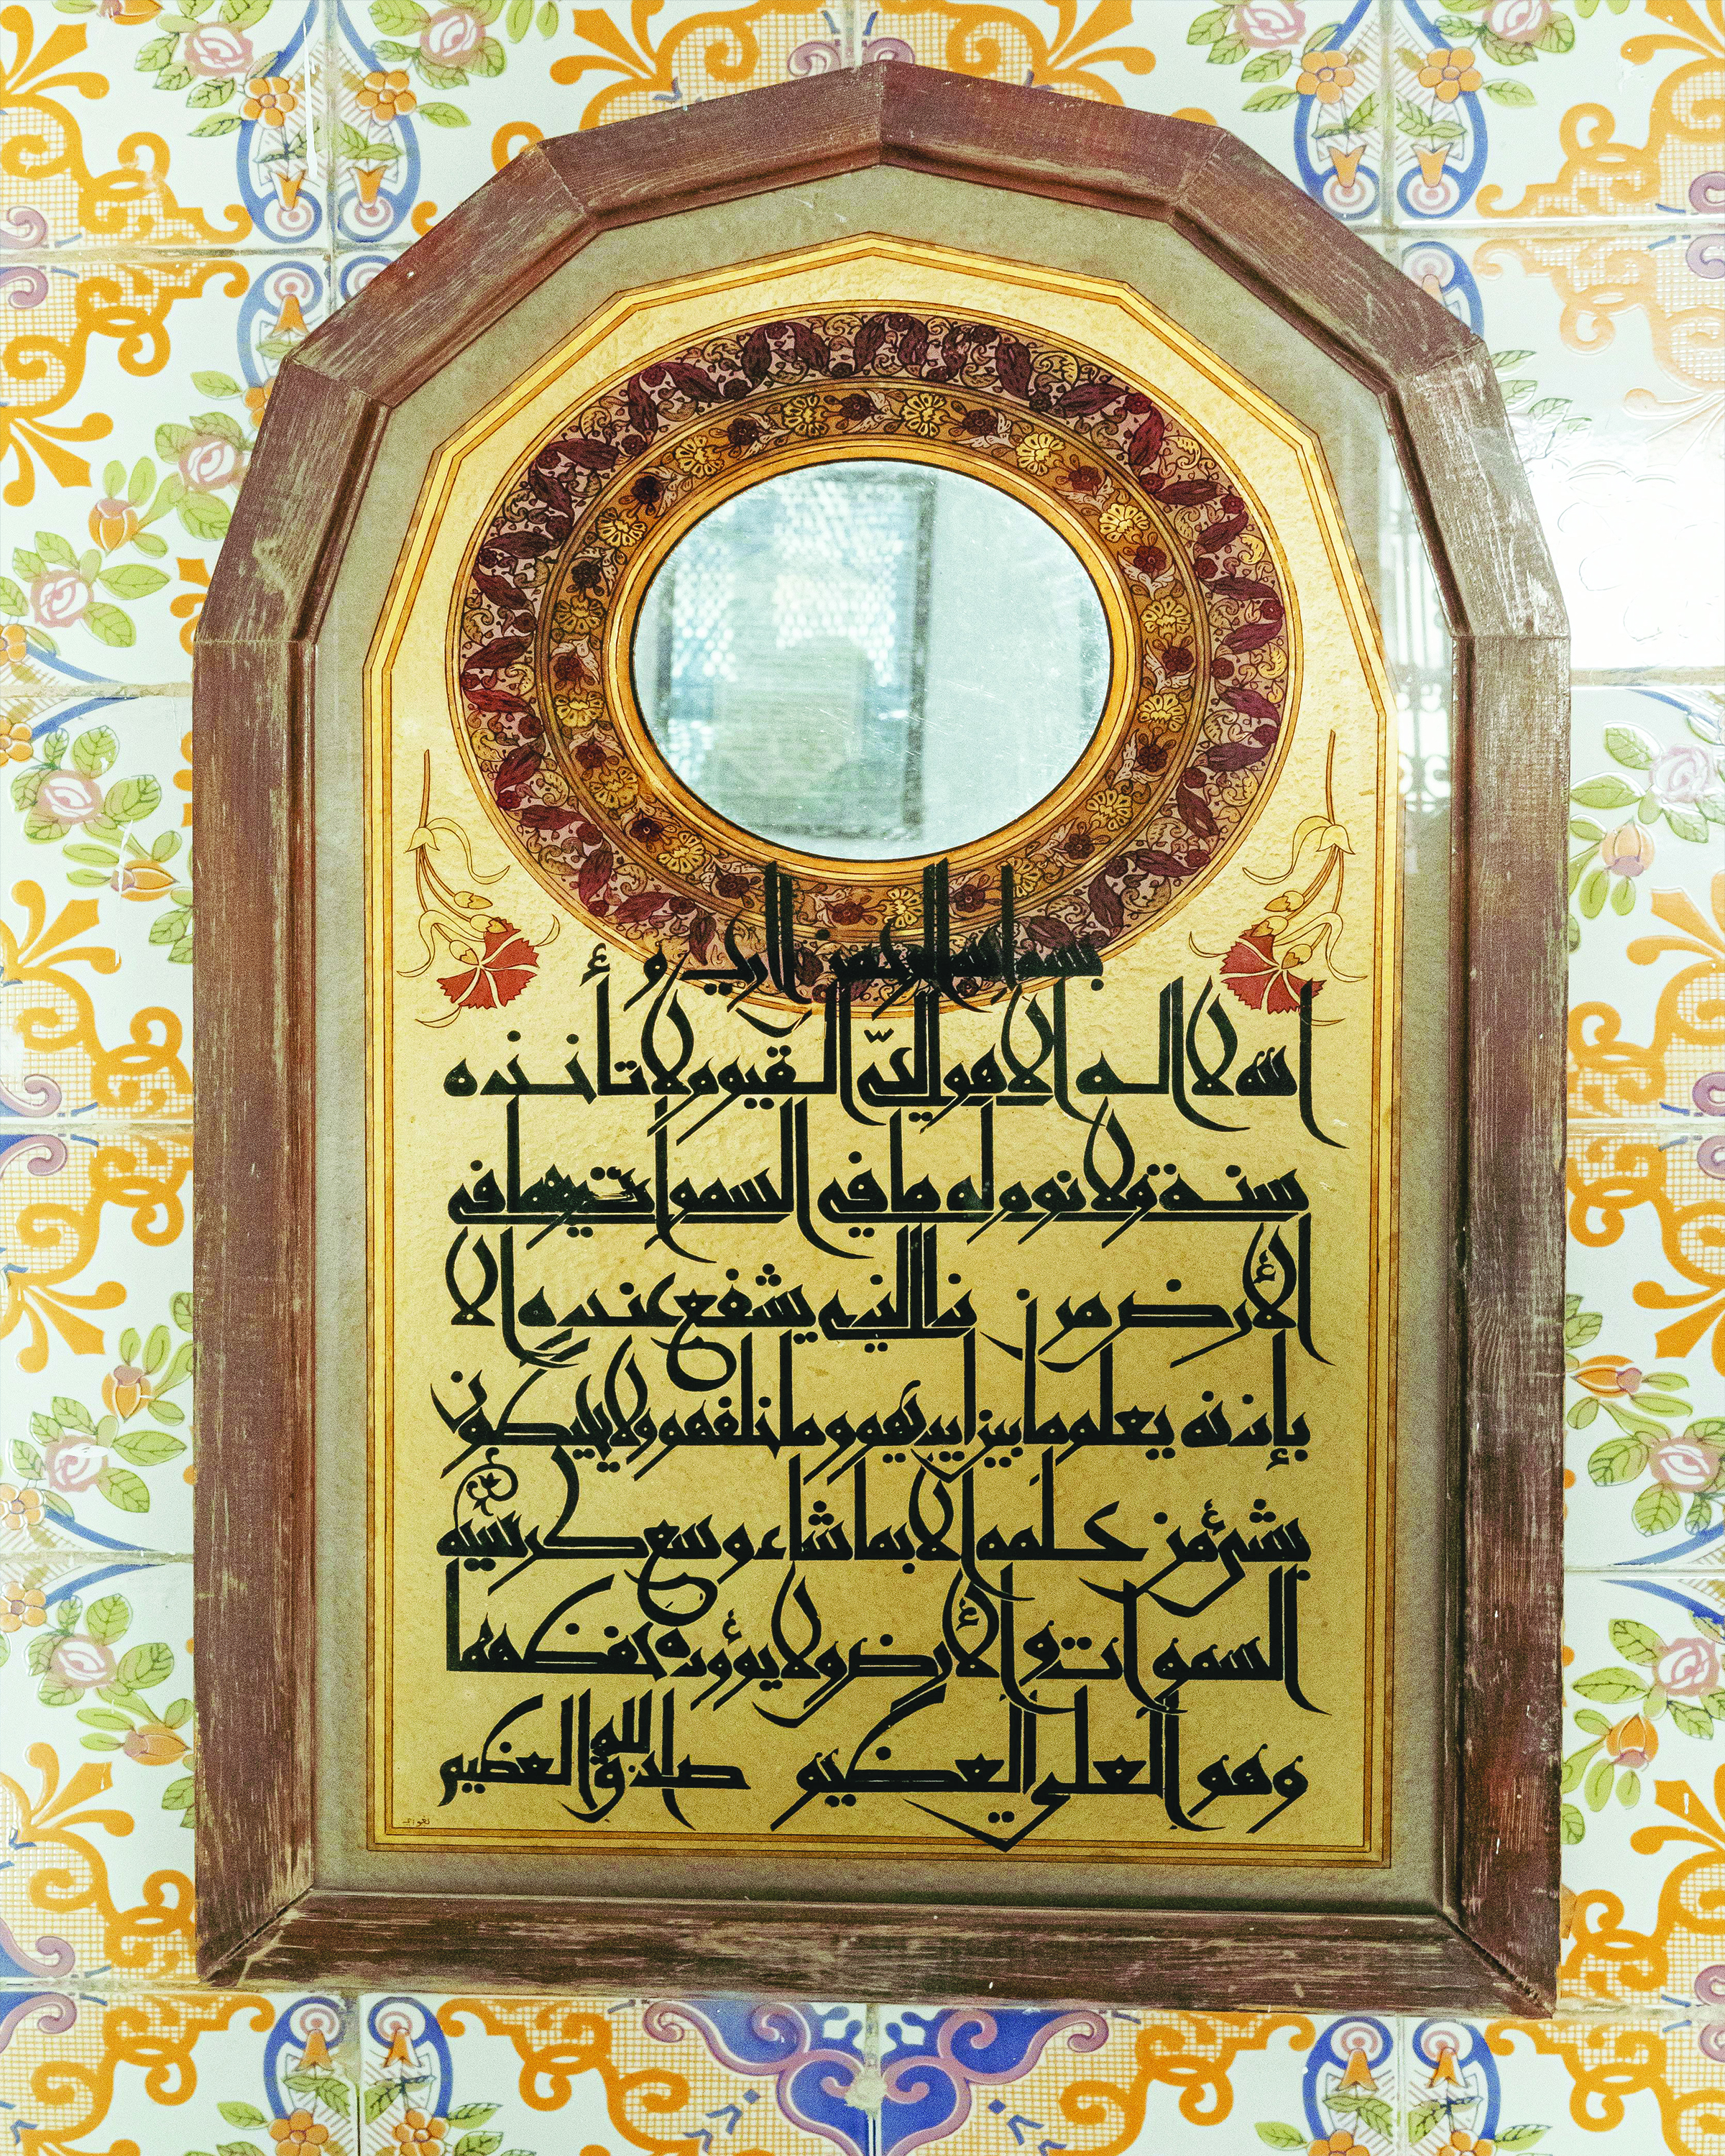 بسم الله الرحمن الرحيم
الله لا اله الا هو الحيّ القيوم لا تأخذه
سنة ولا نوم له ما في السموات وما في
الأرض من ذا الذي يشفع عنده الا
بإذنه يعلم ما بين ايديهم وما خلفهم ولا يحيطون
بشئ من علمه الا بما شاء وسع كرسيه
السموات والأرض ولا يؤوده حفظهما
وهو العلي العظيم صدق الله العظيم